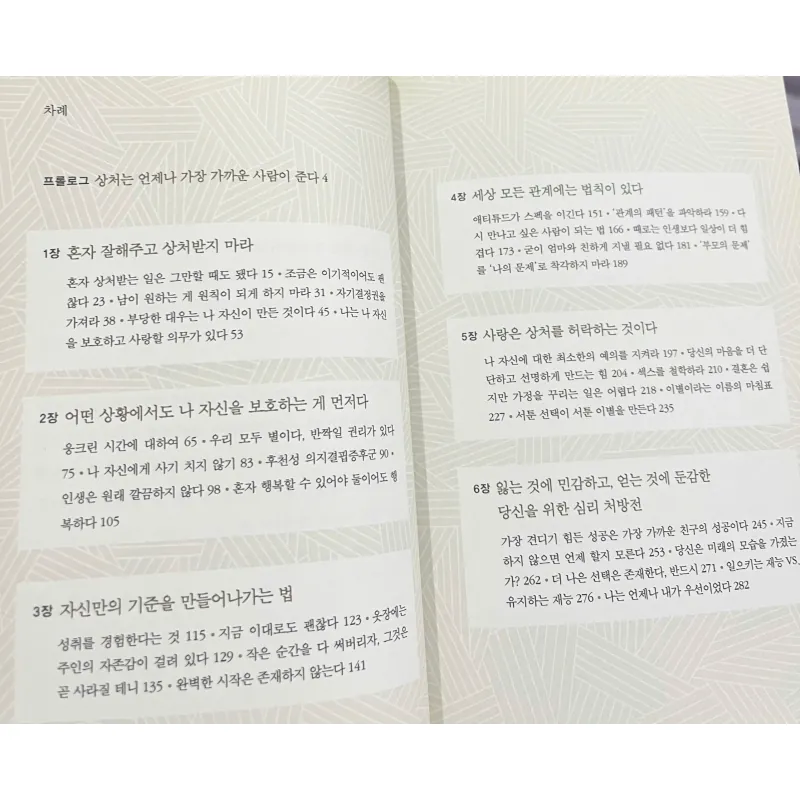 차례
프롤로그 상처는 언제나 가장 가까운 사람이 준다 4
1장 혼자 잘해주고 상처받지 마라
혼자 상처받는 일은 그만할 때도 됐다 15 • 조금은 이기적이어도 괜
찮다 23 • 남이 원하는 게 원칙이 되게 하지 마라 31 • 자기결정권을
가져라 38 • 부당한 대우는 나 자신이 만든 것이다 45 • 나는 나 자신
을 보호하고 사랑할 의무가 있다 53
2장 어떤 상황에서도 나 자신을 보호하는 게 먼저다
웅크린 시간에 대하여 65 • 우리 모두 별이다, 반짝일 권리가 있다
75 • 나 자신에게 사기 치지 않기 83 • 후천성 의지결핍증후군 90 •
인생은 원래 깔끔하지 않다 98 • 혼자 행복할 수 있어야 둘이어도 행
복하다 105
3장 자신만의 기준을 만들어나가는 법
성취를 경험한다는 것 115 • 지금 이대로도 괜찮다 123 • 옷장에는
주인의 자존감이 걸려 있다 129 • 작은 순간을 다 써버리자, 그것은
곧 사라질 테니 135 • 완벽한 시작은 존재하지 않는다 141
4장 세상 모든 관계에는 법칙이 있다
애티튜드가 스펙을 이긴다 151 • '관계의 패턴'을 파악하라 159 • 다
시 만나고 싶은 사람이 되는 법 166 • 때로는 인생보다 일상이 더 힘
겹다 173 • 굳이 엄마와 친하게 지낼 필요 없다 181 • '부모의 문제'
를 '나의 문제'로 착각하지 마라 189
5장 사랑은 상처를 허락하는 것이다
나 자신에 대한 최소한의 예의를 지켜라 197 • 당신의 마음을 더 단
단하고 선명하게 만드는 힘 204 • 섹스를 철학하라 210 • 결혼은 쉽
지만 가정을 꾸리는 일은 어렵다 218 • 이별이라는 이름의 마침표
227 • 서툰 선택이 서툰 이별을 만든다 235
6장 잃는 것에 민감하고, 얻는 것에 둔감한
당신을 위한 심리 처방전
가장 견디기 힘든 성공은 가장 가까운 친구의 성공이다 245 • 지금
하지 않으면 언제 할지 모른다 253 • 당신은 미래의 모습을 가졌는
가? 262 • 더 나은 선택은 존재한다, 반드시 271 • 일으키는 재능 VS.
유지하는 재능 276 • 나는 언제나 내가 우선이었다 282